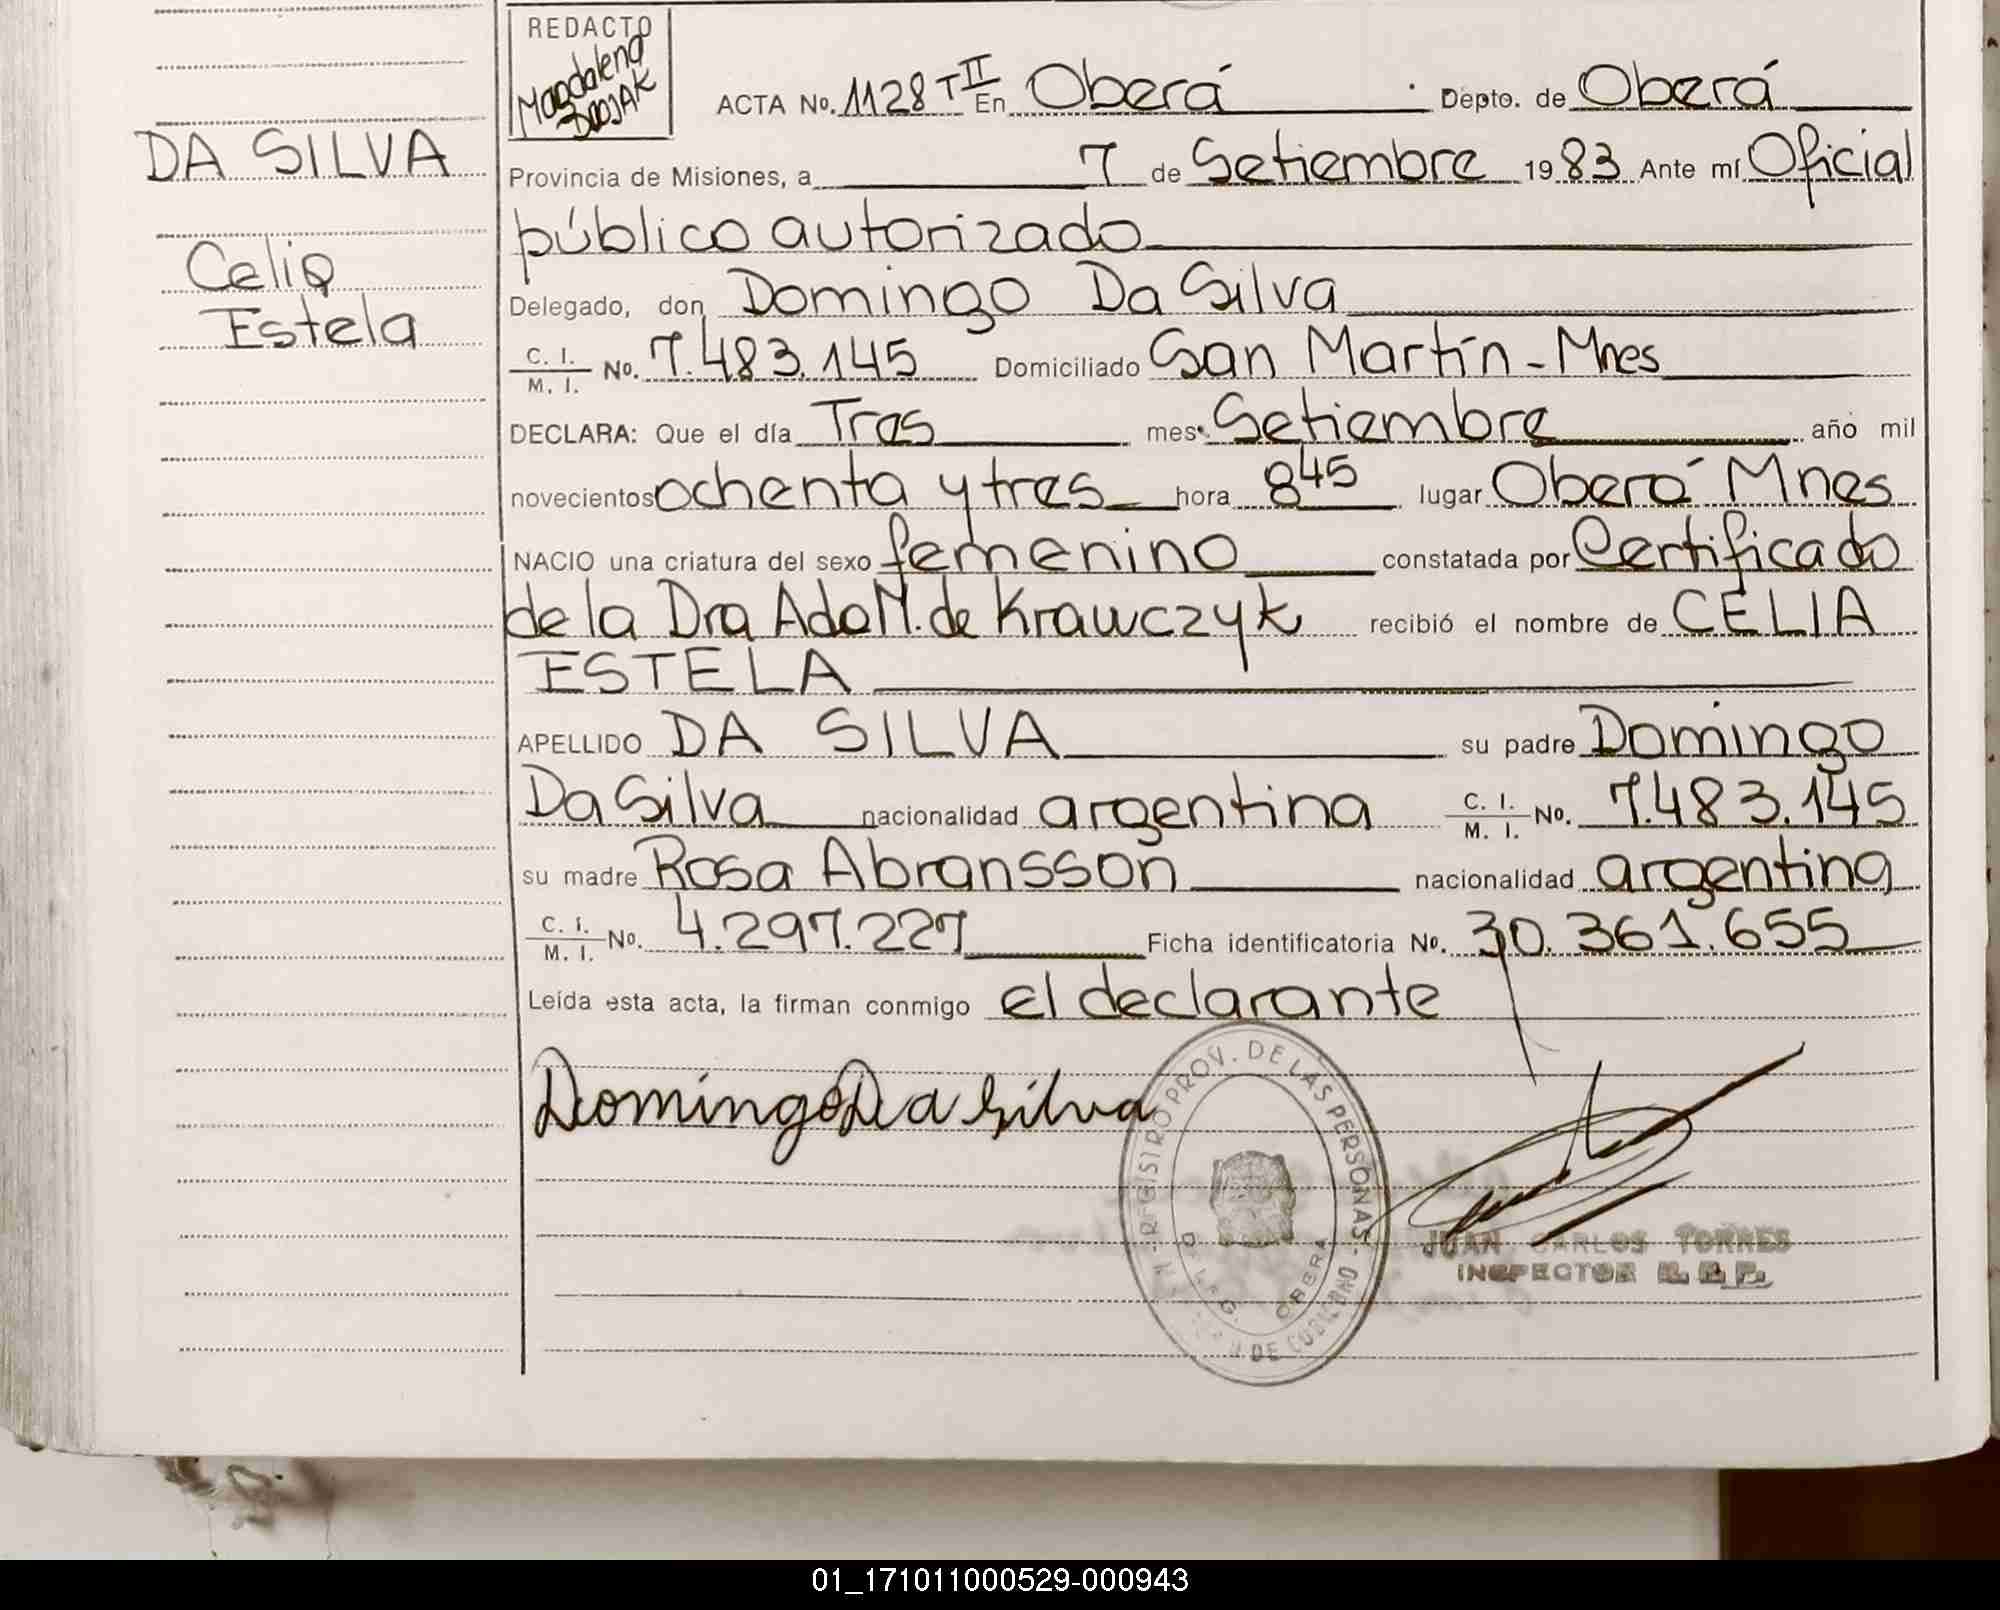 REDACTO
Magdalena
ACTA No. 1128 T II En Oberá Depto. de Oberá
DA SILVA
Provincia de Misiones, a 7 de Setiembre 1983 Ante mí Oficial
público autorizado
Celia
Delegado, don Domingo Da Silva
Estela
C. I. / M. I. No. 7.483.145 Domiciliado San Martín - Mnes
DECLARA: Que el día Tres mes Setiembre año mil
novecientos ochenta y tres hora 8 45 lugar Oberá Mnes
NACIO una criatura del sexo femenino constatada por Certificado
de la Dra Ada N. de Krawczyk recibió el nombre de CELIA
ESTELA
APELLIDO DA SILVA su padre Domingo
Da Silva nacionalidad argentina C. I. / M. I. No. 7.483.145
su madre Rosa Abransson nacionalidad argentina
C. I. / M. I. No. 4.297.227 Ficha identificatoria No. 30.361.655
Leída esta acta, la firman conmigo el declarante
Domingo Da Silva
REGISTRO PROV. DE LAS PERSONAS
OBERA
JUAN CARLOS TORRES
INSPECTOR R. P.
01_171011000529-000943